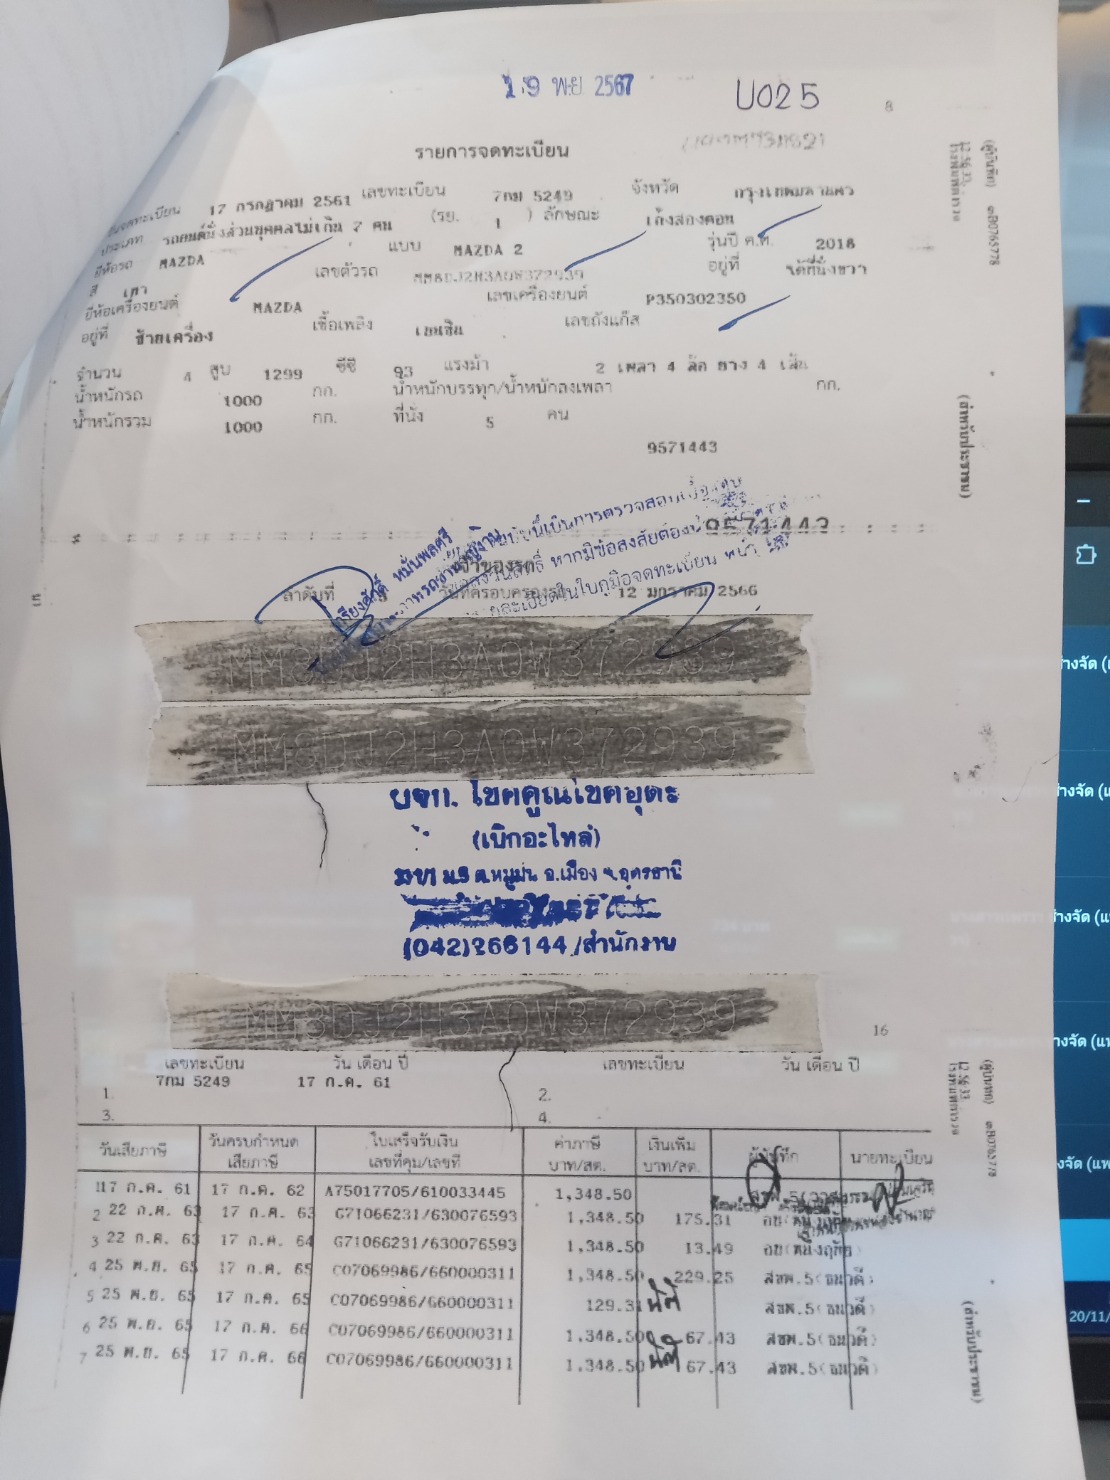 19 พ.ย 2567
U025
8
รายการจดทะเบียน
วันจดทะเบียน 17 กรกฎาคม 2561 เลขทะเบียน 7กม 5249 จังหวัด กรุงเทพมหานคร
ประเภท รถยนต์นั่งส่วนบุคคลไม่เกิน 7 คน (รย. 1 ) ลักษณะ เก๋งสองตอน
ยี่ห้อรถ MAZDA แบบ MAZDA 2 รุ่นปี ค.ศ. 2018
สี เทา เลขตัวรถ MM8DJ2H3A0W372939 อยู่ที่ ใต้ที่นั่งขวา
ยี่ห้อเครื่องยนต์ MAZDA เลขเครื่องยนต์ P350302350
อยู่ที่ ซ้ายเครื่อง เชื้อเพลิง เบนซิน เลขถังแก๊ส
จำนวน 4 สูบ 1299 ซีซี 93 แรงม้า 2 เพลา 4 ล้อ ยาง 4 เส้น
น้ำหนักรถ 1000 กก. น้ำหนักบรรทุก/น้ำหนักลงเพลา กก.
น้ำหนักรวม 1000 กก. ที่นั่ง 5 คน
9571443
9571443
เจ้าของรถ
ลำดับที่ วันที่ครอบครองรถ 12 มกราคม 2566
เกรียงศักดิ์ หมั่นพลศรี
MM8DJ2H3A0W372939
MM8DJ2H3A0W372939
ผจก. โชคคูณโชคอุดร
(เบิกอะไหล่)
ม.5 ต.หมูม่น อ.เมือง จ.อุดรธานี
(042)266144/สำนักงาน
MM8DJ2H3A0W372939
16
เลขทะเบียน วัน เดือน ปี เลขทะเบียน วัน เดือน ปี
1. 7กม 5249 17 ก.ค. 61 2.
3. 4.
วันเสียภาษี วันครบกำหนดเสียภาษี ใบเสร็จรับเงิน เลขที่คุม/เลขที่ ค่าภาษี บาท/สต. เงินเพิ่ม บาท/สต. ผู้บันทึก นายทะเบียน
1 17 ก.ค. 61 17 ก.ค. 62 A75017705/610033445 1,348.50
2 22 ก.ค. 63 17 ก.ค. 63 G71066231/630076593 1,348.50 175.31
3 22 ก.ค. 63 17 ก.ค. 64 G71066231/630076593 1,348.50 13.49
4 25 พ.ย. 65 17 ก.ค. 65 C07069986/660000311 1,348.50 229.25 สขพ.5(ธนวดี)
5 25 พ.ย. 65 17 ก.ค. 65 C07069986/660000311 129.31 สขพ.5(ธนวดี)
6 25 พ.ย. 65 17 ก.ค. 66 C07069986/660000311 1,348.50 67.43 สขพ.5(ธนวดี)
7 25 พ.ย. 65 17 ก.ค. 66 C07069986/660000311 1,348.50 67.43 สขพ.5(ธนวดี)
(สำหรับประชาชน)
(สำหรับประชาชน)
20/11/